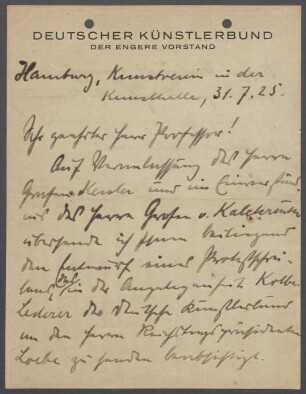 DEUTSCHER KÜNSTLERBUND
DER ENGERE VORSTAND
Hamburg, Kunstverein in der
Kunsthalle, 31.7.25.
Sehr geehrter Herr Professor!
Auf Veranlassung des Herrn
Grafen Kessler und im Einverständ
nis des Herrn Grafen v. Kalckreuth
übersende ich Ihnen beiliegend
den Entwurf eines Protestschrei-
bens, das in der Angelegenheit Kolbe-
Lederer der deutsche Künstlerbund
an den Herrn Reichstagspräsidenten
Loebe zu senden beabsichtigt.